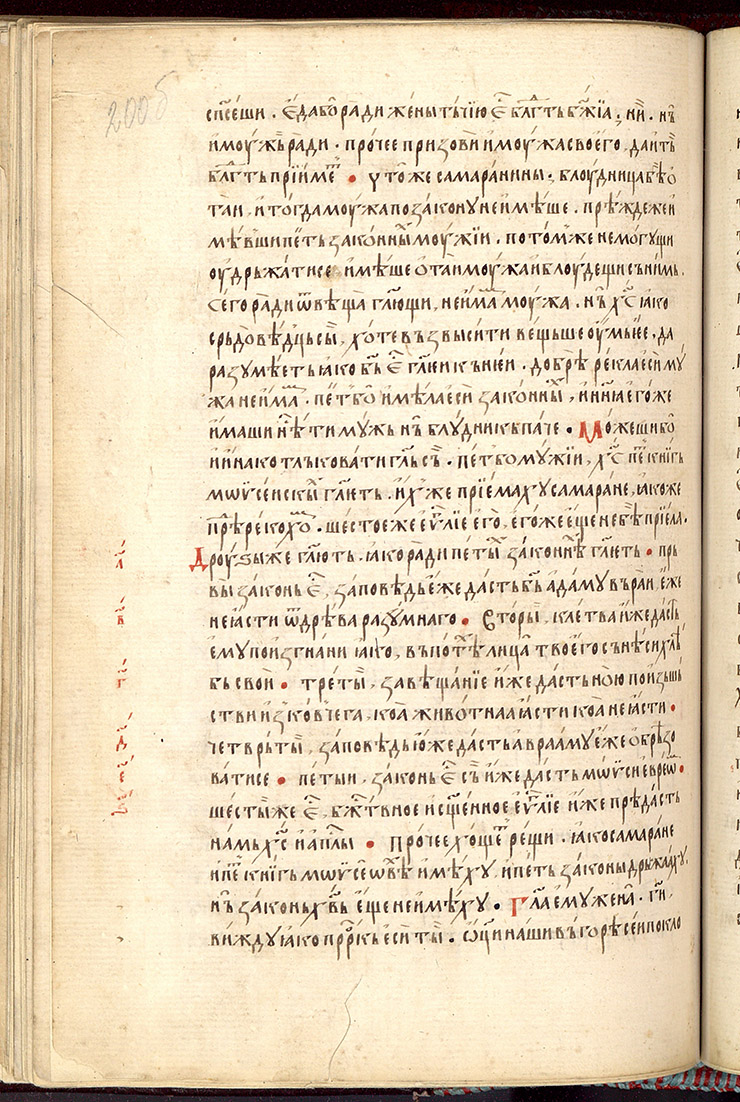 200б
спсеши . Едабо ради жены тъчїю е҆ блг҃ть бж҃їа , ни . нъ
и моужъ ради . прочее призови и моужа своего , да и тъ
блг҃ть прїимет • у то же самаранины , блоудница бѣ ѡ
таи , и тогда моужа по закону не имѣше . прѣжде же и
мѣвши петь законных моужїи . потом же не могущи
оудръжатисе имѣше отаи моужа и блоудещи съ нимь .
Сего ради ѿвѣща глющи , не имам моужа . нъ хс҃ ꙗко
срьдовѣдць сы , хоте възвысити вещьше оумь ее , да
разумѣеть ꙗко бъ е҆ глеи къ неи . добрѣ рекла еси му
жа не имам . пет бо имѣла еси законных , и нн҃ꙗ егоже
имаши нѣ ти мужь нъ блудникь паче • Можеши бо
и инако тлъковати глъ съ . пет бо мужїи , хс҃ пет книгь
мѡѵсеискых глеть . ихже прїемаху самаране , ꙗкоже
прѣрекохом . шестое же еѵлїе его , егоже еще не бѣ прїела .
Друѕы же глють . ꙗко ради петых законь глеть • пръ
а҃
вы законь е҆ , заповѣдь еже дасть бъ адаму въ раи , еже
не ꙗсти ѿ дрѣва разумнаго • Вторыи , клетва иже дасть
в҃
ему по изгнани ꙗко , въ потѣ лица твоего сънѣси хлѣ
бь свои • третыи , завѣщанїе иже дасть ною по изьшь
г҃
ствїи изь ковчега , коа животнаа ꙗсти коа не ꙗсти •
четврьтыи , заповѣдь юже дасть авраламу еже обрѣзо
д҃
ватисе • петыи , законь е҆ съ иже дасть мѡѵси евреѡм •
е҃
шестыи же е҆ , бжтвное и сщенное еѵлїе иже прѣдасть
ѕ҃
намь хс҃ и апли • прочее хощет рещи . ꙗко самаране
и пет книгь мѡѵсеѡвѣх имѣху , и петь законы дръжаху .
нъ законь хв҃ъ еще не имѣху • Гла ему жена . ги ,
вижду ꙗко прркь еси ты . ѡци наши въ горѣ сеи покло